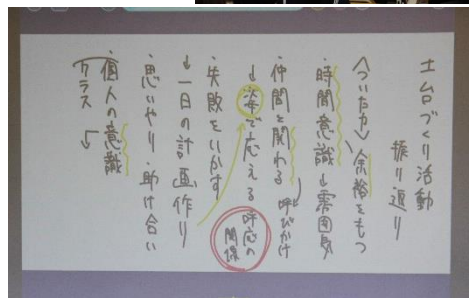 土台づくり活動
振り返り
〈ついた力〉余裕をもつ
・時間意識→雰囲気
・仲間と関わる 呼びかけ
↓姿で応える 呼応の関係
・失敗をいかす
↓一日の計画作り
・思いやり・助け合い
・個人の意識
クラス ↓